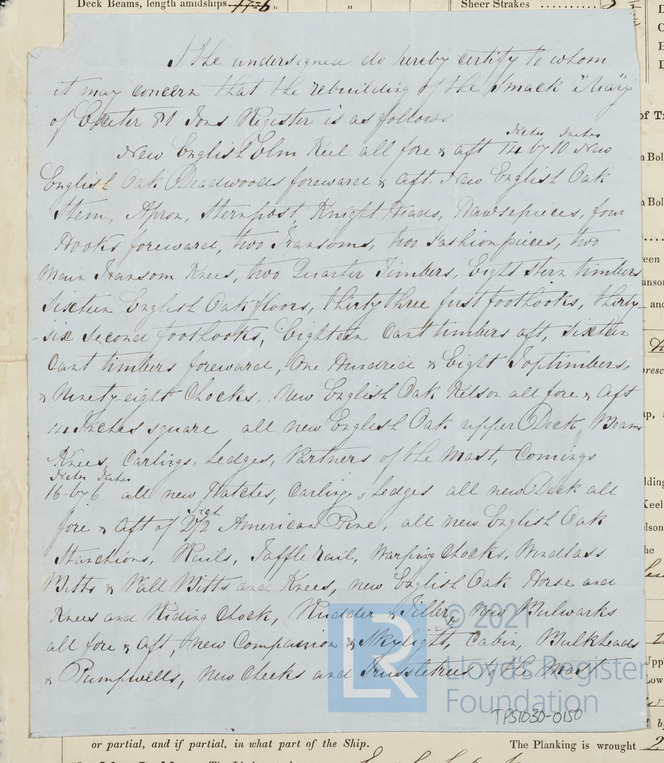 Deck Beams, length amidships
Sheer Strakes
I the undersigned do hereby certify to whom
it may concern that the rebuilding of the Smack "Mary"
of Exeter Tons Register is as follows
Inches Inches
New English Elm Keel all fore & aft 14 by 10 New
English Oak Deadwoods foreward & aft, New English Oak
Stem, Apron, Sternpost, Knight Heads, Hawsepieces, four
Hooks foreward, two Transoms, two Fashionpieces, two
Main Transom Knees, two Quarter Timbers, Eight Stern timbers
Sixteen English Oak floors, thirty three first foothooks, thirty
six second foothooks, Eighteen Cant timbers aft, sixteen
Cant timbers foreward, One Hundred & Eight Toptimbers,
& Ninety eight Chocks. New English Oak Kelson all fore & aft
Inches square all new English Oak upper Deck, Beams
Knees, Carlings, Ledges, Partners of the Mast, Comings
Inches Inches
16 by 6 all new Hatches, Carlings & Ledges all new Deck all
Inch
fore & aft of 2 1/2 American Pine, all new English Oak
Stanchions, Rails, Taffle rail, Warping Chocks, Windlass
Bitts & Pall Bitts and Knees, new English Oak Horse and
Knees and Riding Chock, Rudder & Tiller, New Bulwarks
all fore & aft, new Companion & Skylight, Cabin, Bulkheads
& Pumpwells, new Cheeks and Trussletrees of the Mast
© 2021
LR
Lloyd's Register
Foundation
TPS1030-0150
or partial, and if partial, in what part of the Ship.
The Planking is wrought